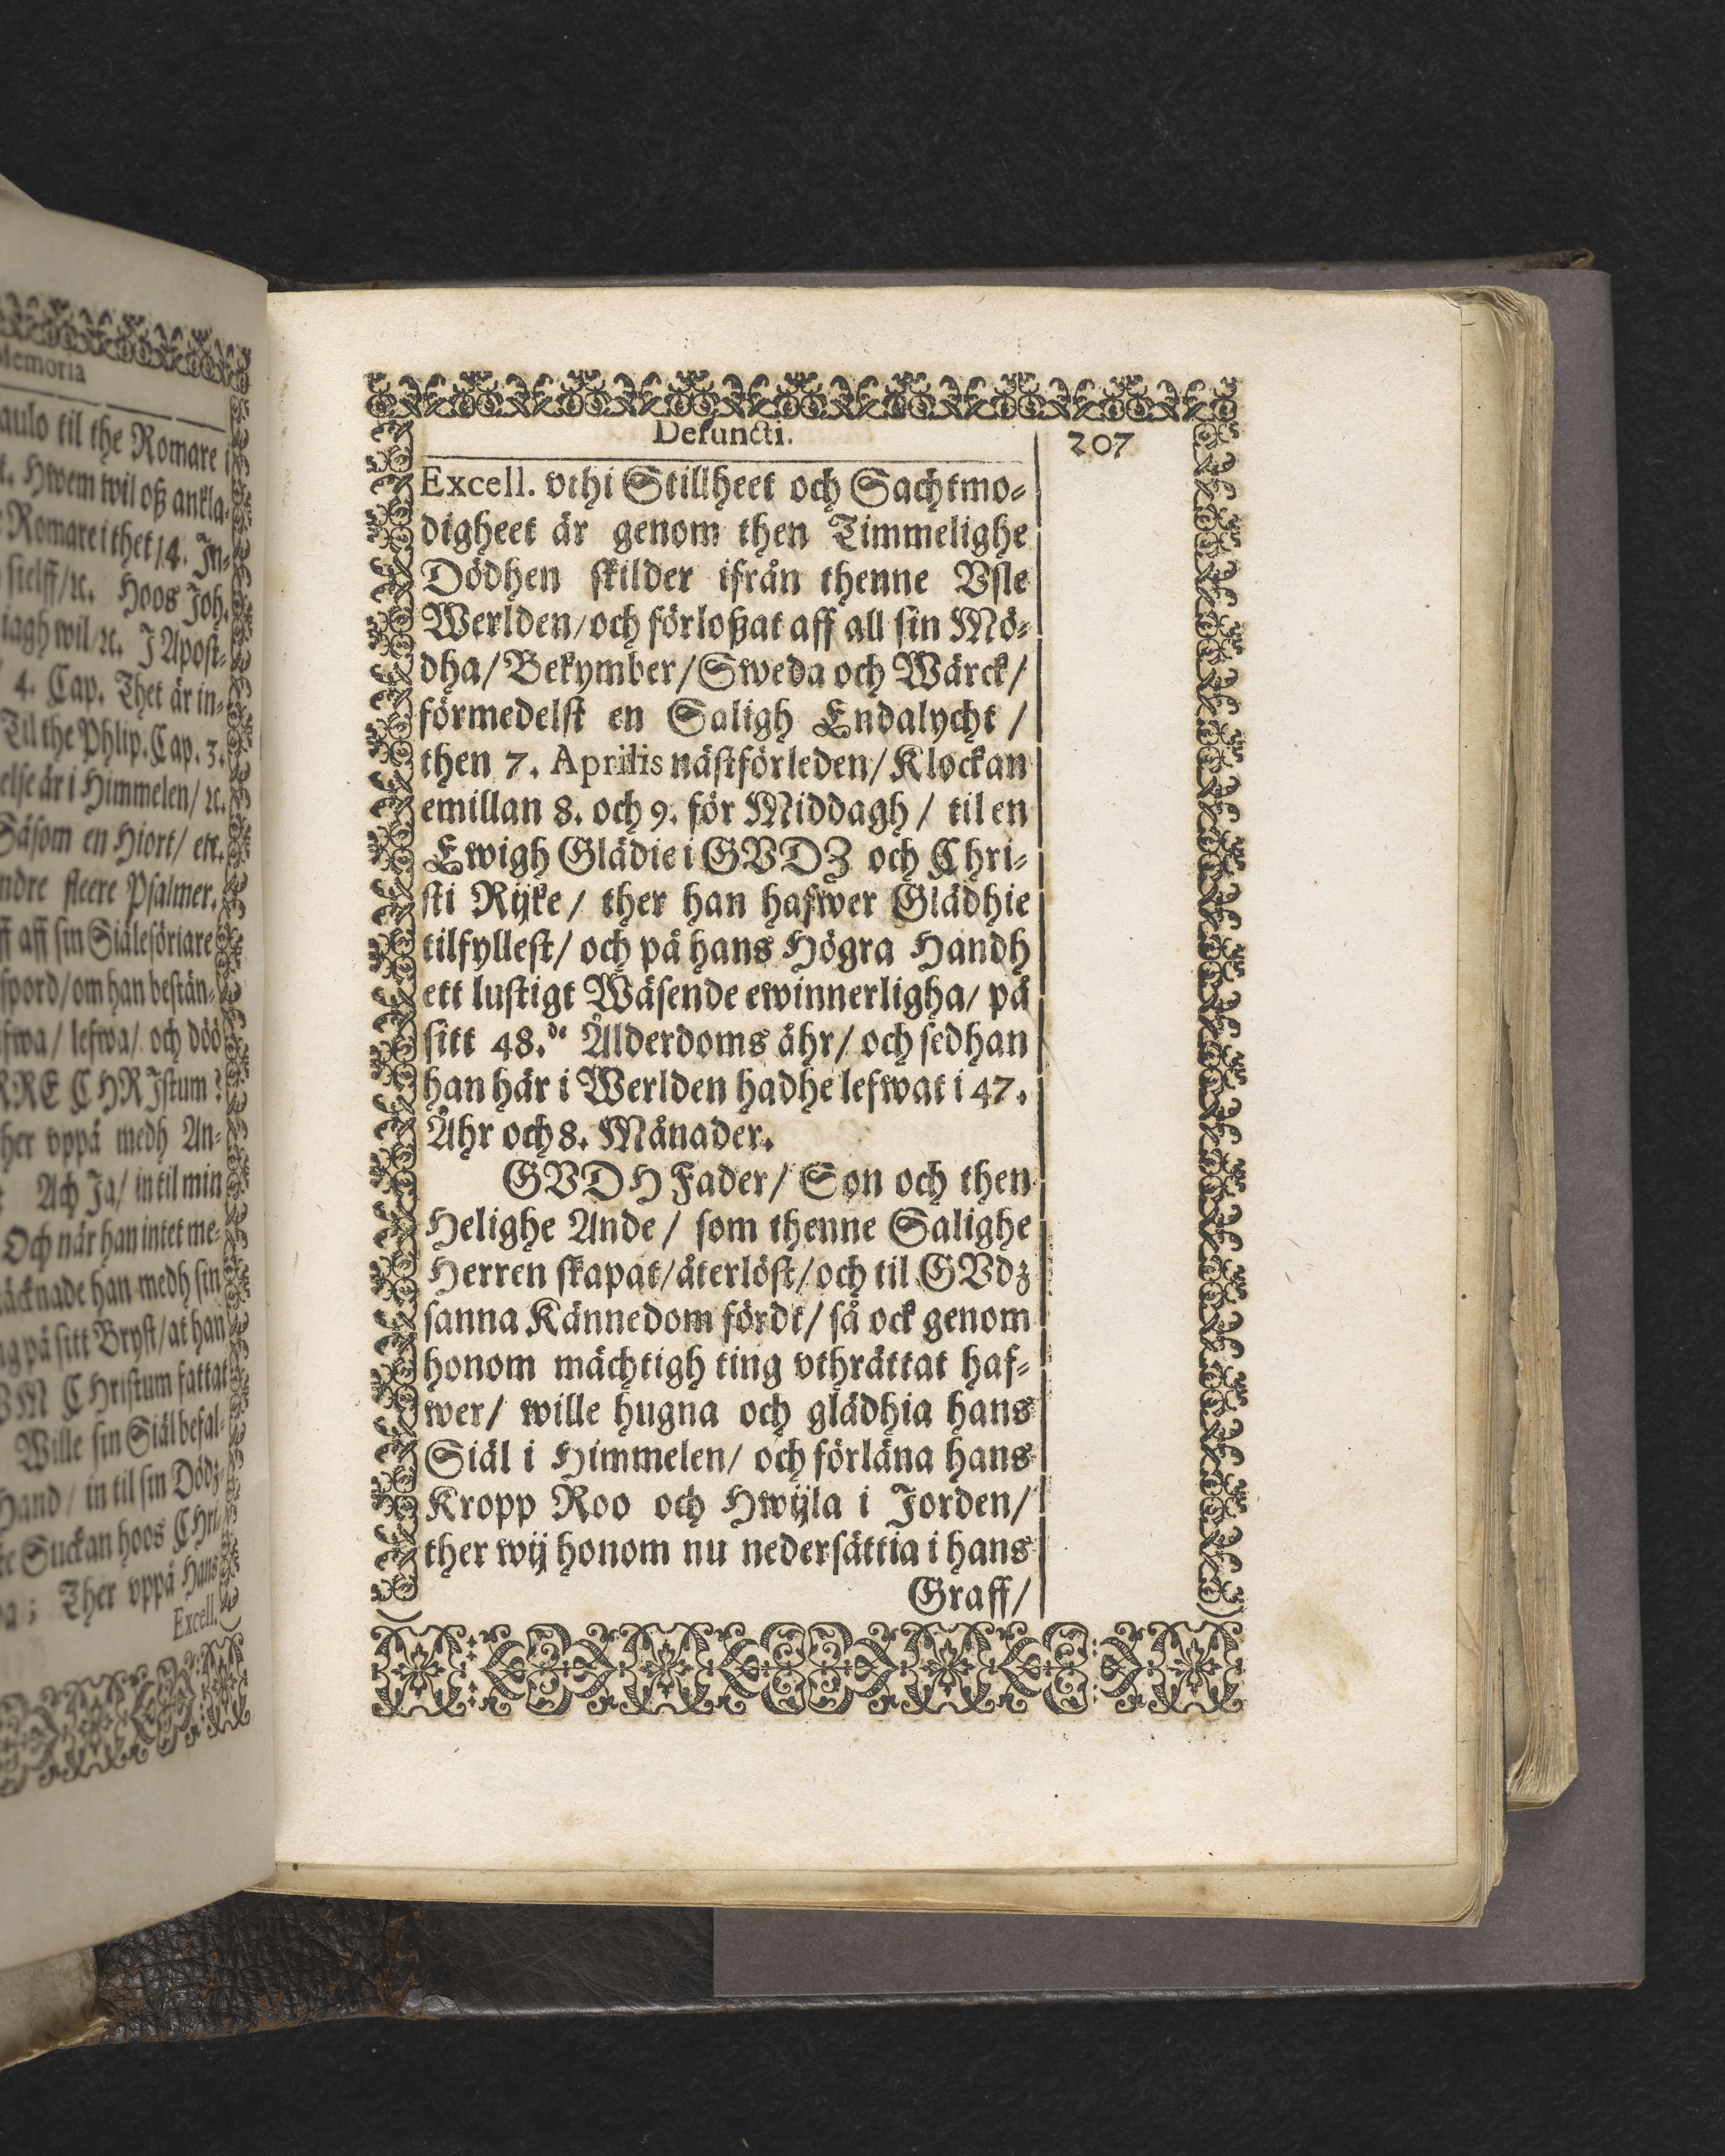 Memoria
aulo til the Romare
t. Hwem wil oß ankla-
Romare i thet 14. In-
sielff/ꝛc. Hoos Joh.
iagh wil/ꝛc. J Apost-
4. Cap. Thet är in-
Til the Phlip. Cap. 3.
else är i Himmelen/ ꝛc.
Såsom en Hiort/ etc.
ndre fleere Psalmer.
ff aff sin Siälesöriare
spord/om han bestän-
fwa/ lefwa/ och döö
RRE CHRJstum?
her vppå medh An-
Ach Ja/ in til min
Och när han intet me-
äcknade han medh sin
ng på sitt Bryst/at han
VM CHristum fattat
Wille sin Siäl befal-
Hand/ in til sin Dödz-
te Suckan hoos CHri-
a; Ther vppå Hans
Excell.
Defuncti.
207
Excell. vthi Stillheet och Sachtmo-
digheet är genom then Timmelighe
Dödhen skilder ifrån thenne Vsle
Werlden/och förloßat aff all sin Mö-
dha/Bekymber/Sweda och Wärck/
förmedelst en Saligh Endalycht /
then 7. Aprilis nästförleden/Klockan
emillan 8. och 9. för Middagh / til en
Ewigh Glädie i GVDZ och Chri-
sti Rijke/ ther han hafwer Glädhie
tilfyllest/ och på hans Högra Handh
ett lustigt Wäsende ewinnerligha/ på
sitt 48.de Ålderdoms åhr/ och sedhan
han här i Werlden hadhe lefwat i 47.
Åhr och 8. Månader.
GVDH Fader/ Son och then
Helighe Ande / som thenne Salighe
Herren skapat/återlöst/och til GVdz
sanna Kännedom fördt/ så ock genom
honom mächtigh ting vthrättat haf-
wer/ wille hugna och glädhia hans
Siäl i Himmelen/ och förläna hans
Kropp Roo och Hwijla i Jorden/
ther wij honom nu nedersättia i hans
Graff/